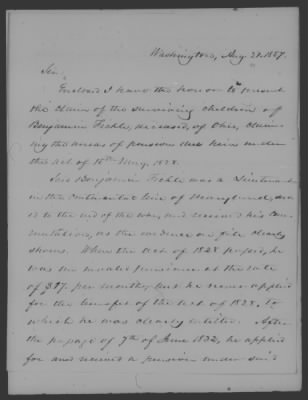 Washington, Aug. 20. 1857.
Sir,
Enclosed I have the honor to present
the claim of the surviving children of
Benjamin Fickle, deceased, of Ohio, claim-
ing the arrears of pension due him under
the act of 15th May, 1828.
Said Benjamin Fickle was a Lieutenant
in the Continental line of Maryland,
to the end of the war, and received his com-
mutation, as the evidence on file clearly
shows. When the act of 1828 passed, he
was an invalid pensioner at the rate
of per month, but he never applied
for the benefit of the act of 1828, to
which he was clearly entitled. After
the passage of 7th of June 1832, he applied
for and received a pension under said